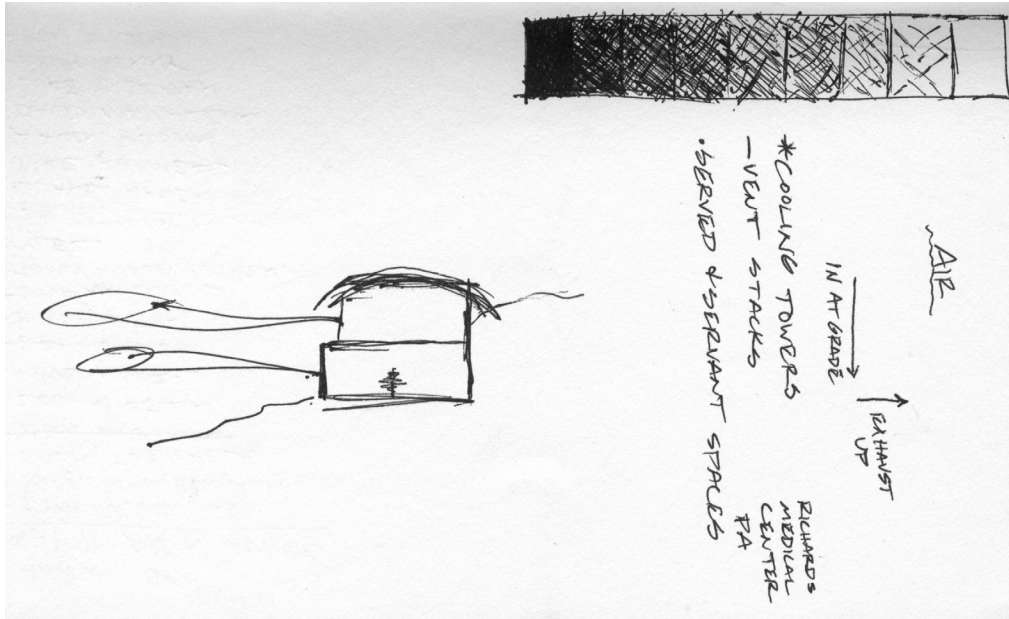 AIR
IN AT GRADE
EXHAUST
UP
*COOLING TOWERS
-VENT STACKS
•SERVED & SERVANT SPACES
RICHARDS
MEDICAL
CENTER
PA